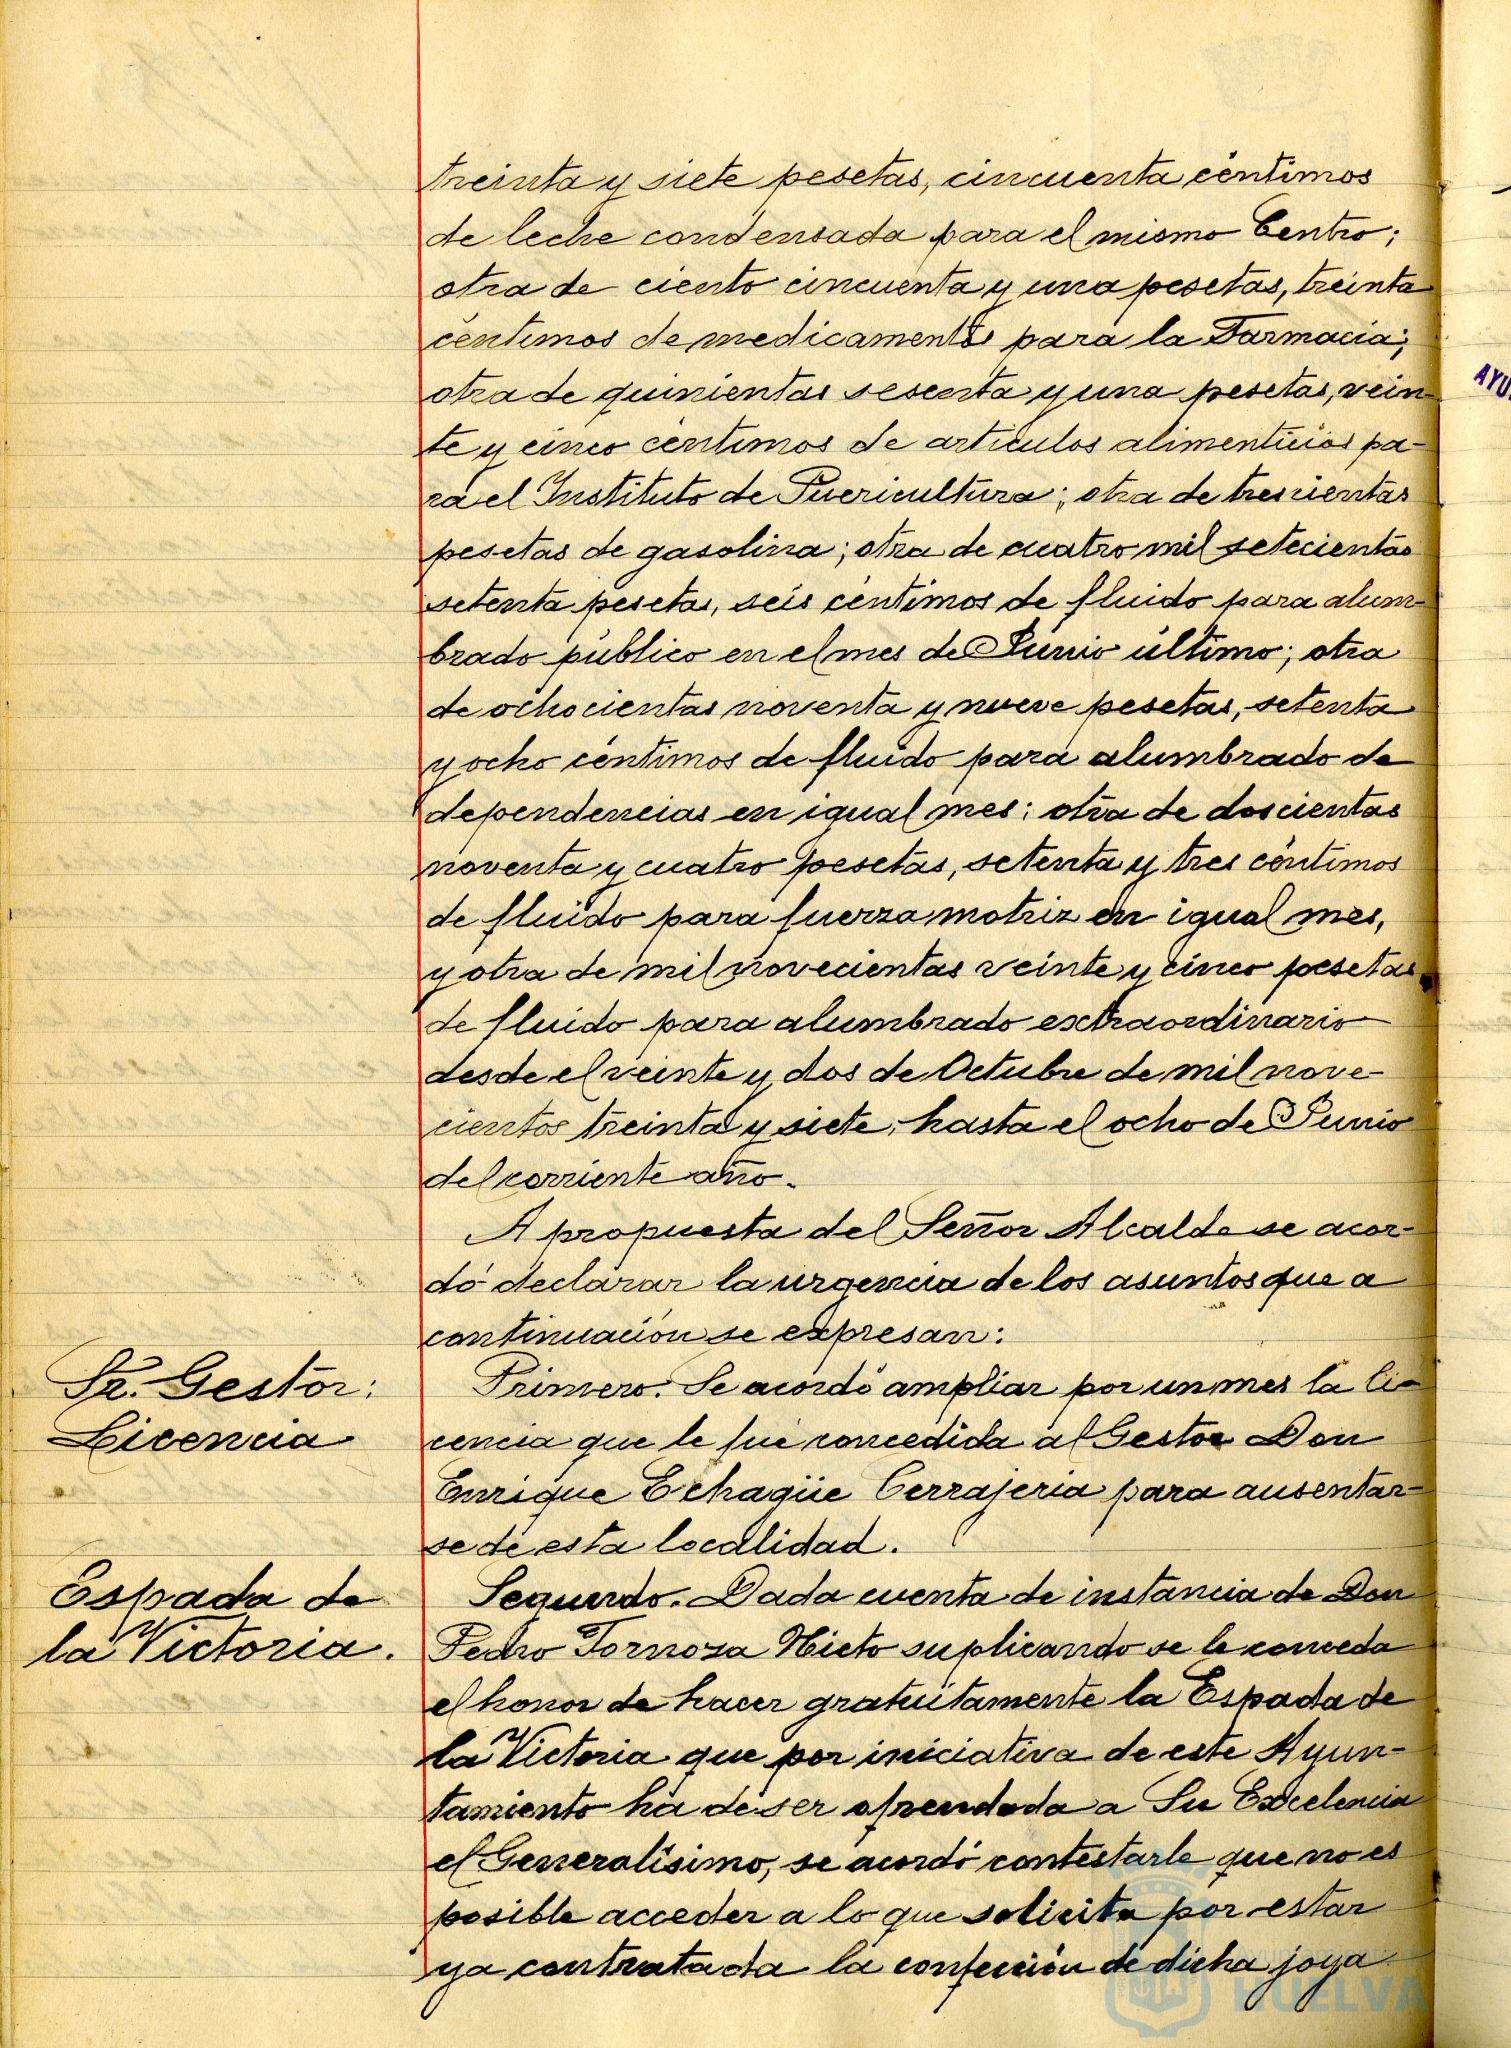 treinta y siete pesetas, cincuenta céntimos
de leche condensada para el mismo Centro;
otra de ciento cincuenta y una pesetas, treinta
céntimos de medicamentos para la Farmacia;
otra de quinientas sesenta y una pesetas, vein-
te y cinco céntimos de artículos alimenticios pa-
ra el Instituto de Puericultura; otra de trescientas
pesetas de gasolina; otra de cuatro mil setecientas
setenta pesetas, seis céntimos de fluido para alum-
brado público en el mes de Junio último; otra
de ochocientas noventa y nueve pesetas, setenta
y ocho céntimos de fluido para alumbrado de
dependencias en igual mes; otra de doscientas
noventa y cuatro pesetas, setenta y tres céntimos
de fluido para fuerza motriz en igual mes,
y otra de mil novecientas veinte y cinco pesetas
de fluido para alumbrado extraordinario
desde el veinte y dos de Octubre de mil nove-
cientos treinta y siete, hasta el ocho de Junio
del corriente año.
A propuesta del Señor Alcalde se acor-
dó declarar la urgencia de los asuntos que a
continuación se expresan:
Sr. Gestor:
Licencia
Primero. Se acordó ampliar por un mes la li-
cencia que le fué concedida al Gestor Don
Enrique Echagüe Cerrajeria para ausentar-
se de esta localidad.
Espada de
la Victoria.
Segundo. Dada cuenta de instancia de Don
Pedro Tornosa Nieto suplicando se le conceda
el honor de hacer gratuitamente la Espada de
la Victoria que por iniciativa de este Ayun-
tamiento ha de ser ofrendada a Su Excelencia
el Generalísimo, se acordó contestarle que no es
posible acceder a lo que solicita por estar
ya contratada la confección de dicha joya
HUELVA
AYU